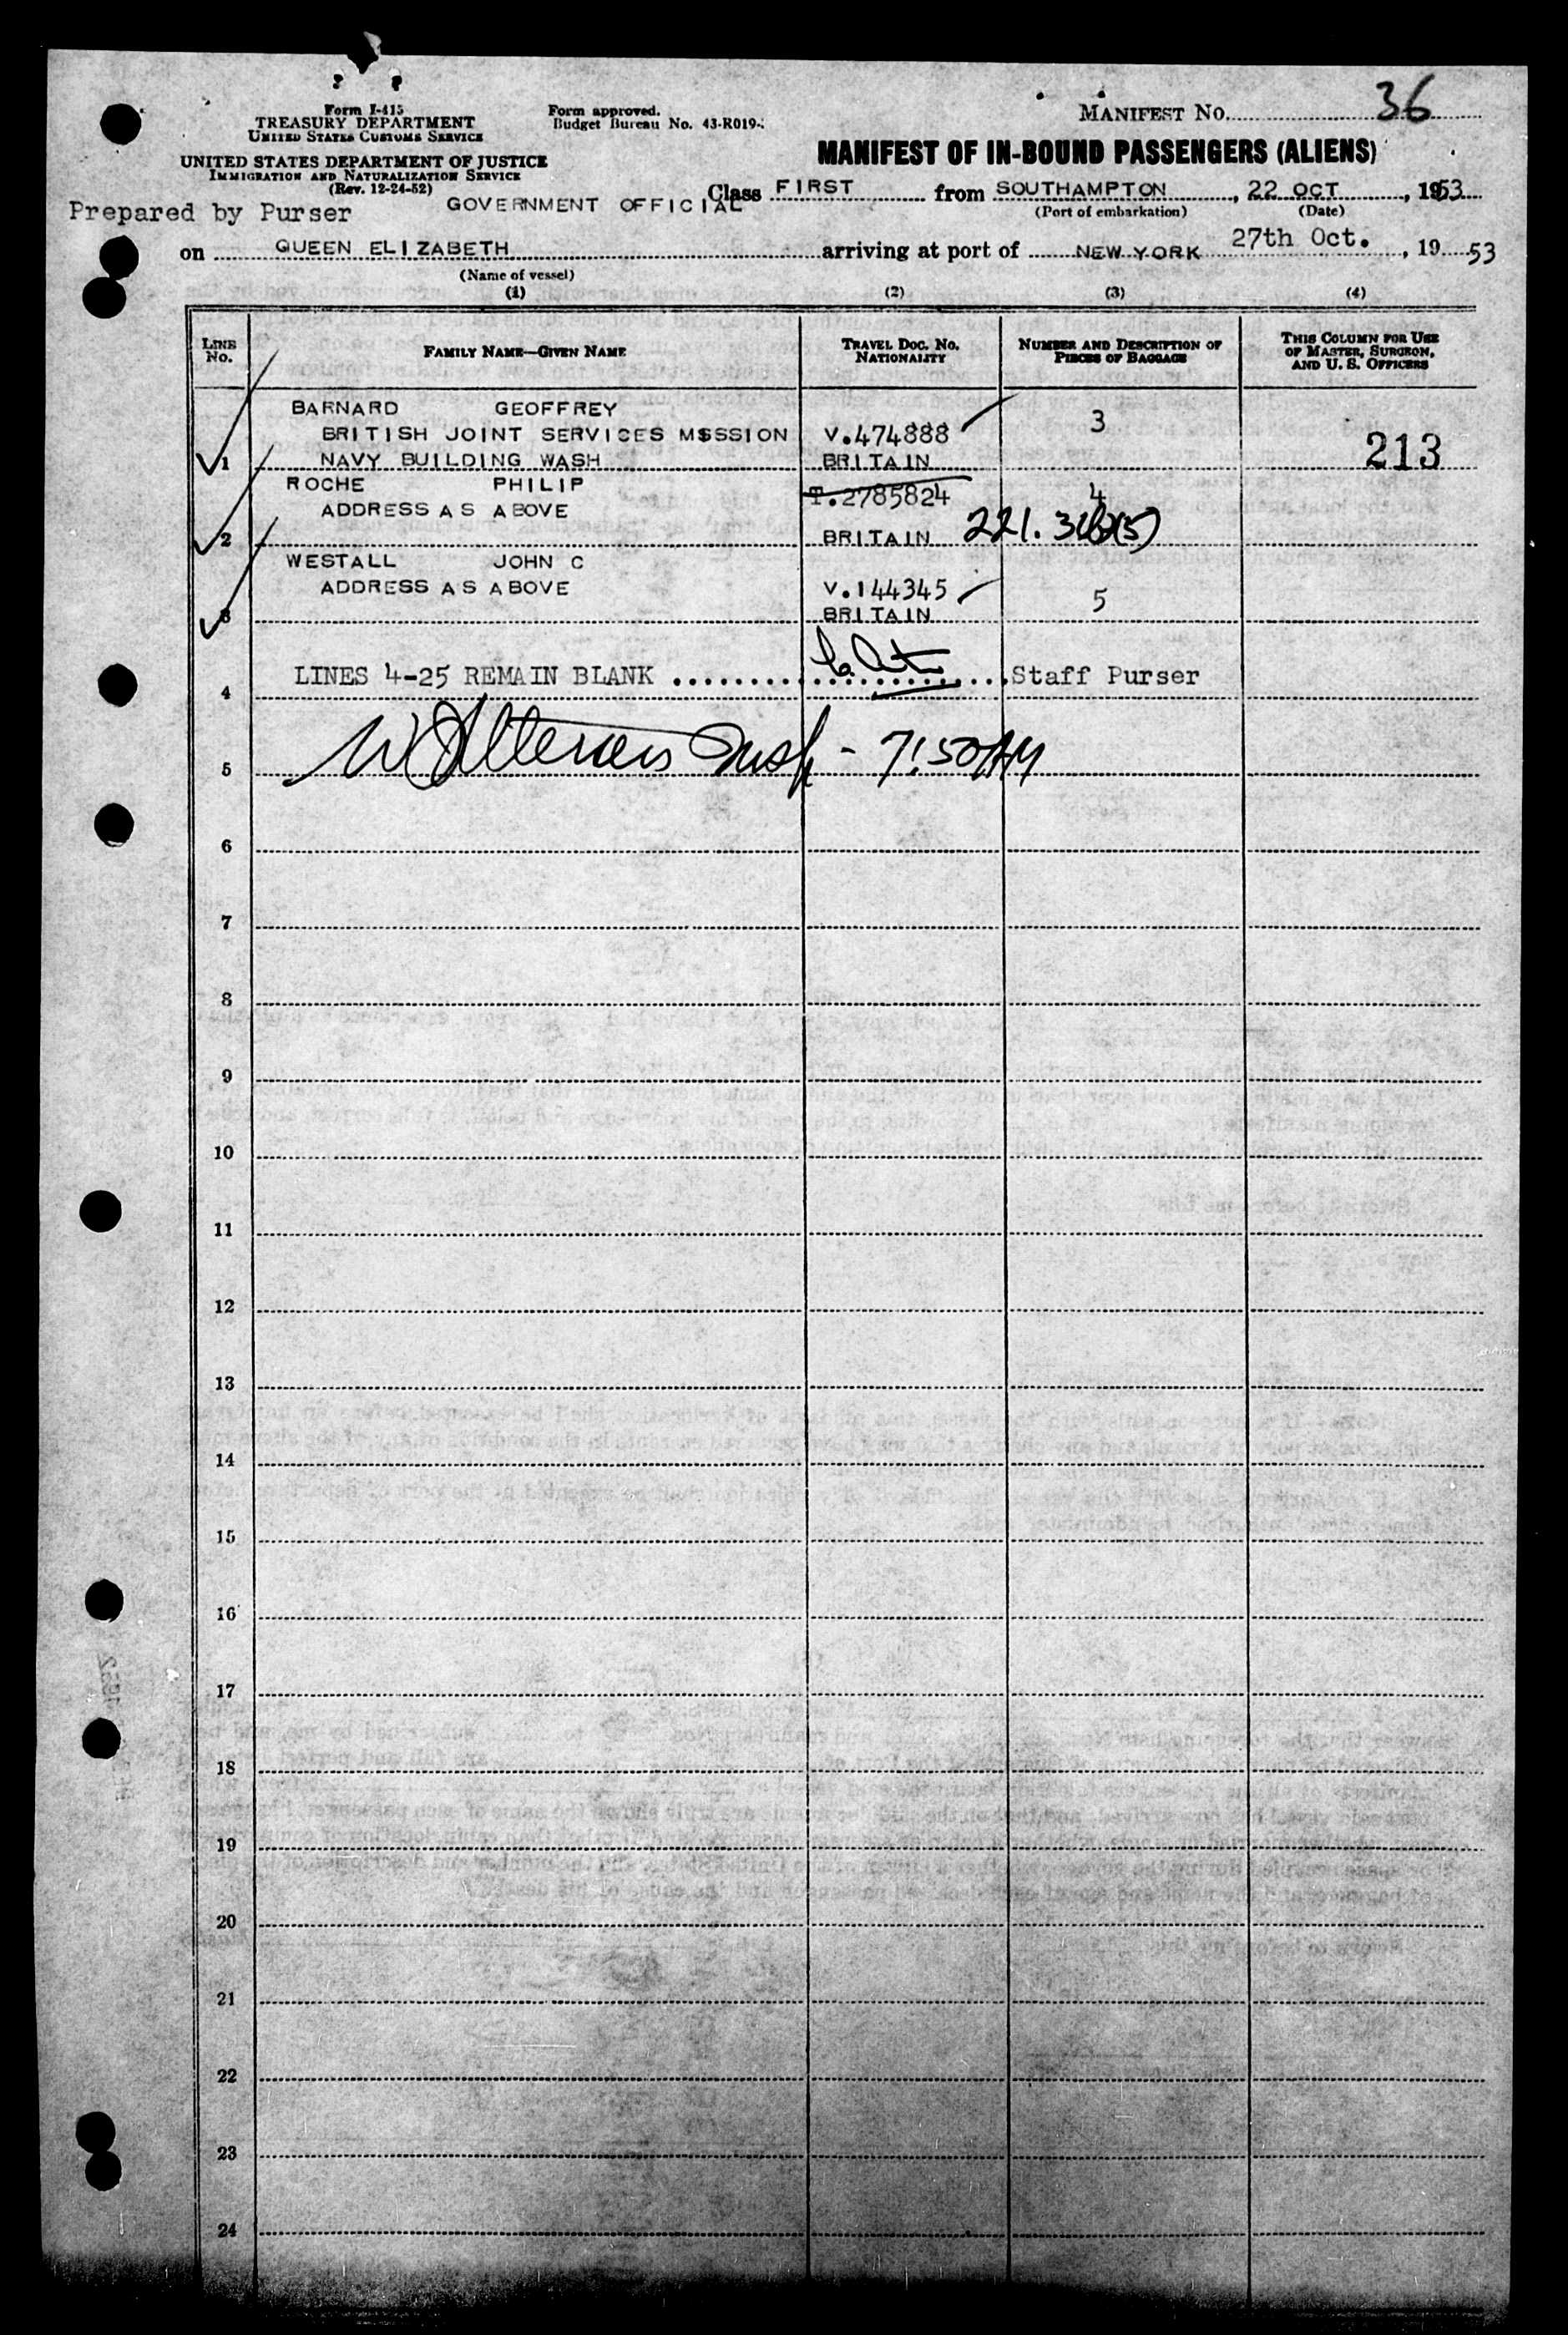 Form I-415
TREASURY DEPARTMENT
UNITED STATES CUSTOMS SERVICE
UNITED STATES DEPARTMENT OF JUSTICE
IMMIGRATION AND NATURALIZATION SERVICE
(Rev. 12-24-52)
Form approved.
Budget Bureau No. 43-R019-
MANIFEST NO. 36
MANIFEST OF IN-BOUND PASSENGERS (ALIENS)
Prepared by Purser
GOVERNMENT OFFICIAL
Class FIRST from SOUTHAMPTON, 22 OCT, 1953
(Port of embarkation) (Date)
on QUEEN ELIZABETH arriving at port of NEW YORK 27th Oct., 1953
(Name of vessel)
(1) (2) (3) (4)
LINE NO.
FAMILY NAME—GIVEN NAME
TRAVEL DOC. NO. NATIONALITY
NUMBER AND DESCRIPTION OF PIECES OF BAGGAGE
THIS COLUMN FOR USE OF MASTER, SURGEON, AND U. S. OFFICERS
BARNARD GEOFFREY
BRITISH JOINT SERVICES MSSSION V.474888 3
1 NAVY BUILDING WASH BRITAIN 213
ROCHE PHILIP T.2785824 4
ADDRESS AS ABOVE
2 BRITAIN 221.
WESTALL JOHN C
ADDRESS AS ABOVE V.144345 5
3 BRITAIN
LINES 4-25 REMAIN BLANK Staff Purser
4
5 - 7:50AM
6
7
8
9
10
11
12
13
14
15
16
17
18
19
20
21
22
23
24